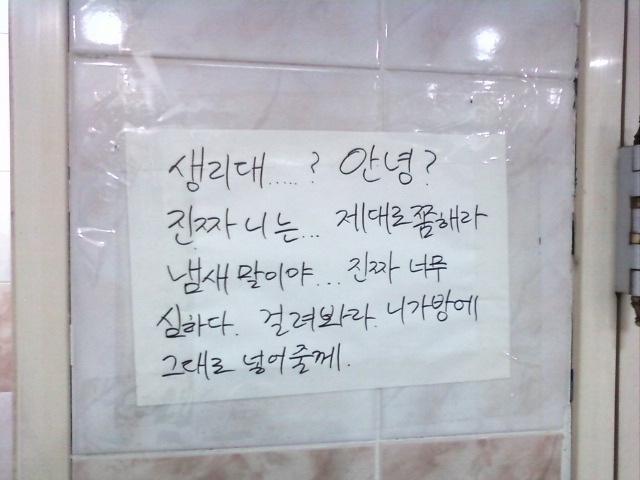 생리대.....? 안녕?
진짜 니는... 제대로쫌해라
냄새말이야... 진짜 너무
심하다. 걸려봐라. 니가방에
그대로 넣어줄께.